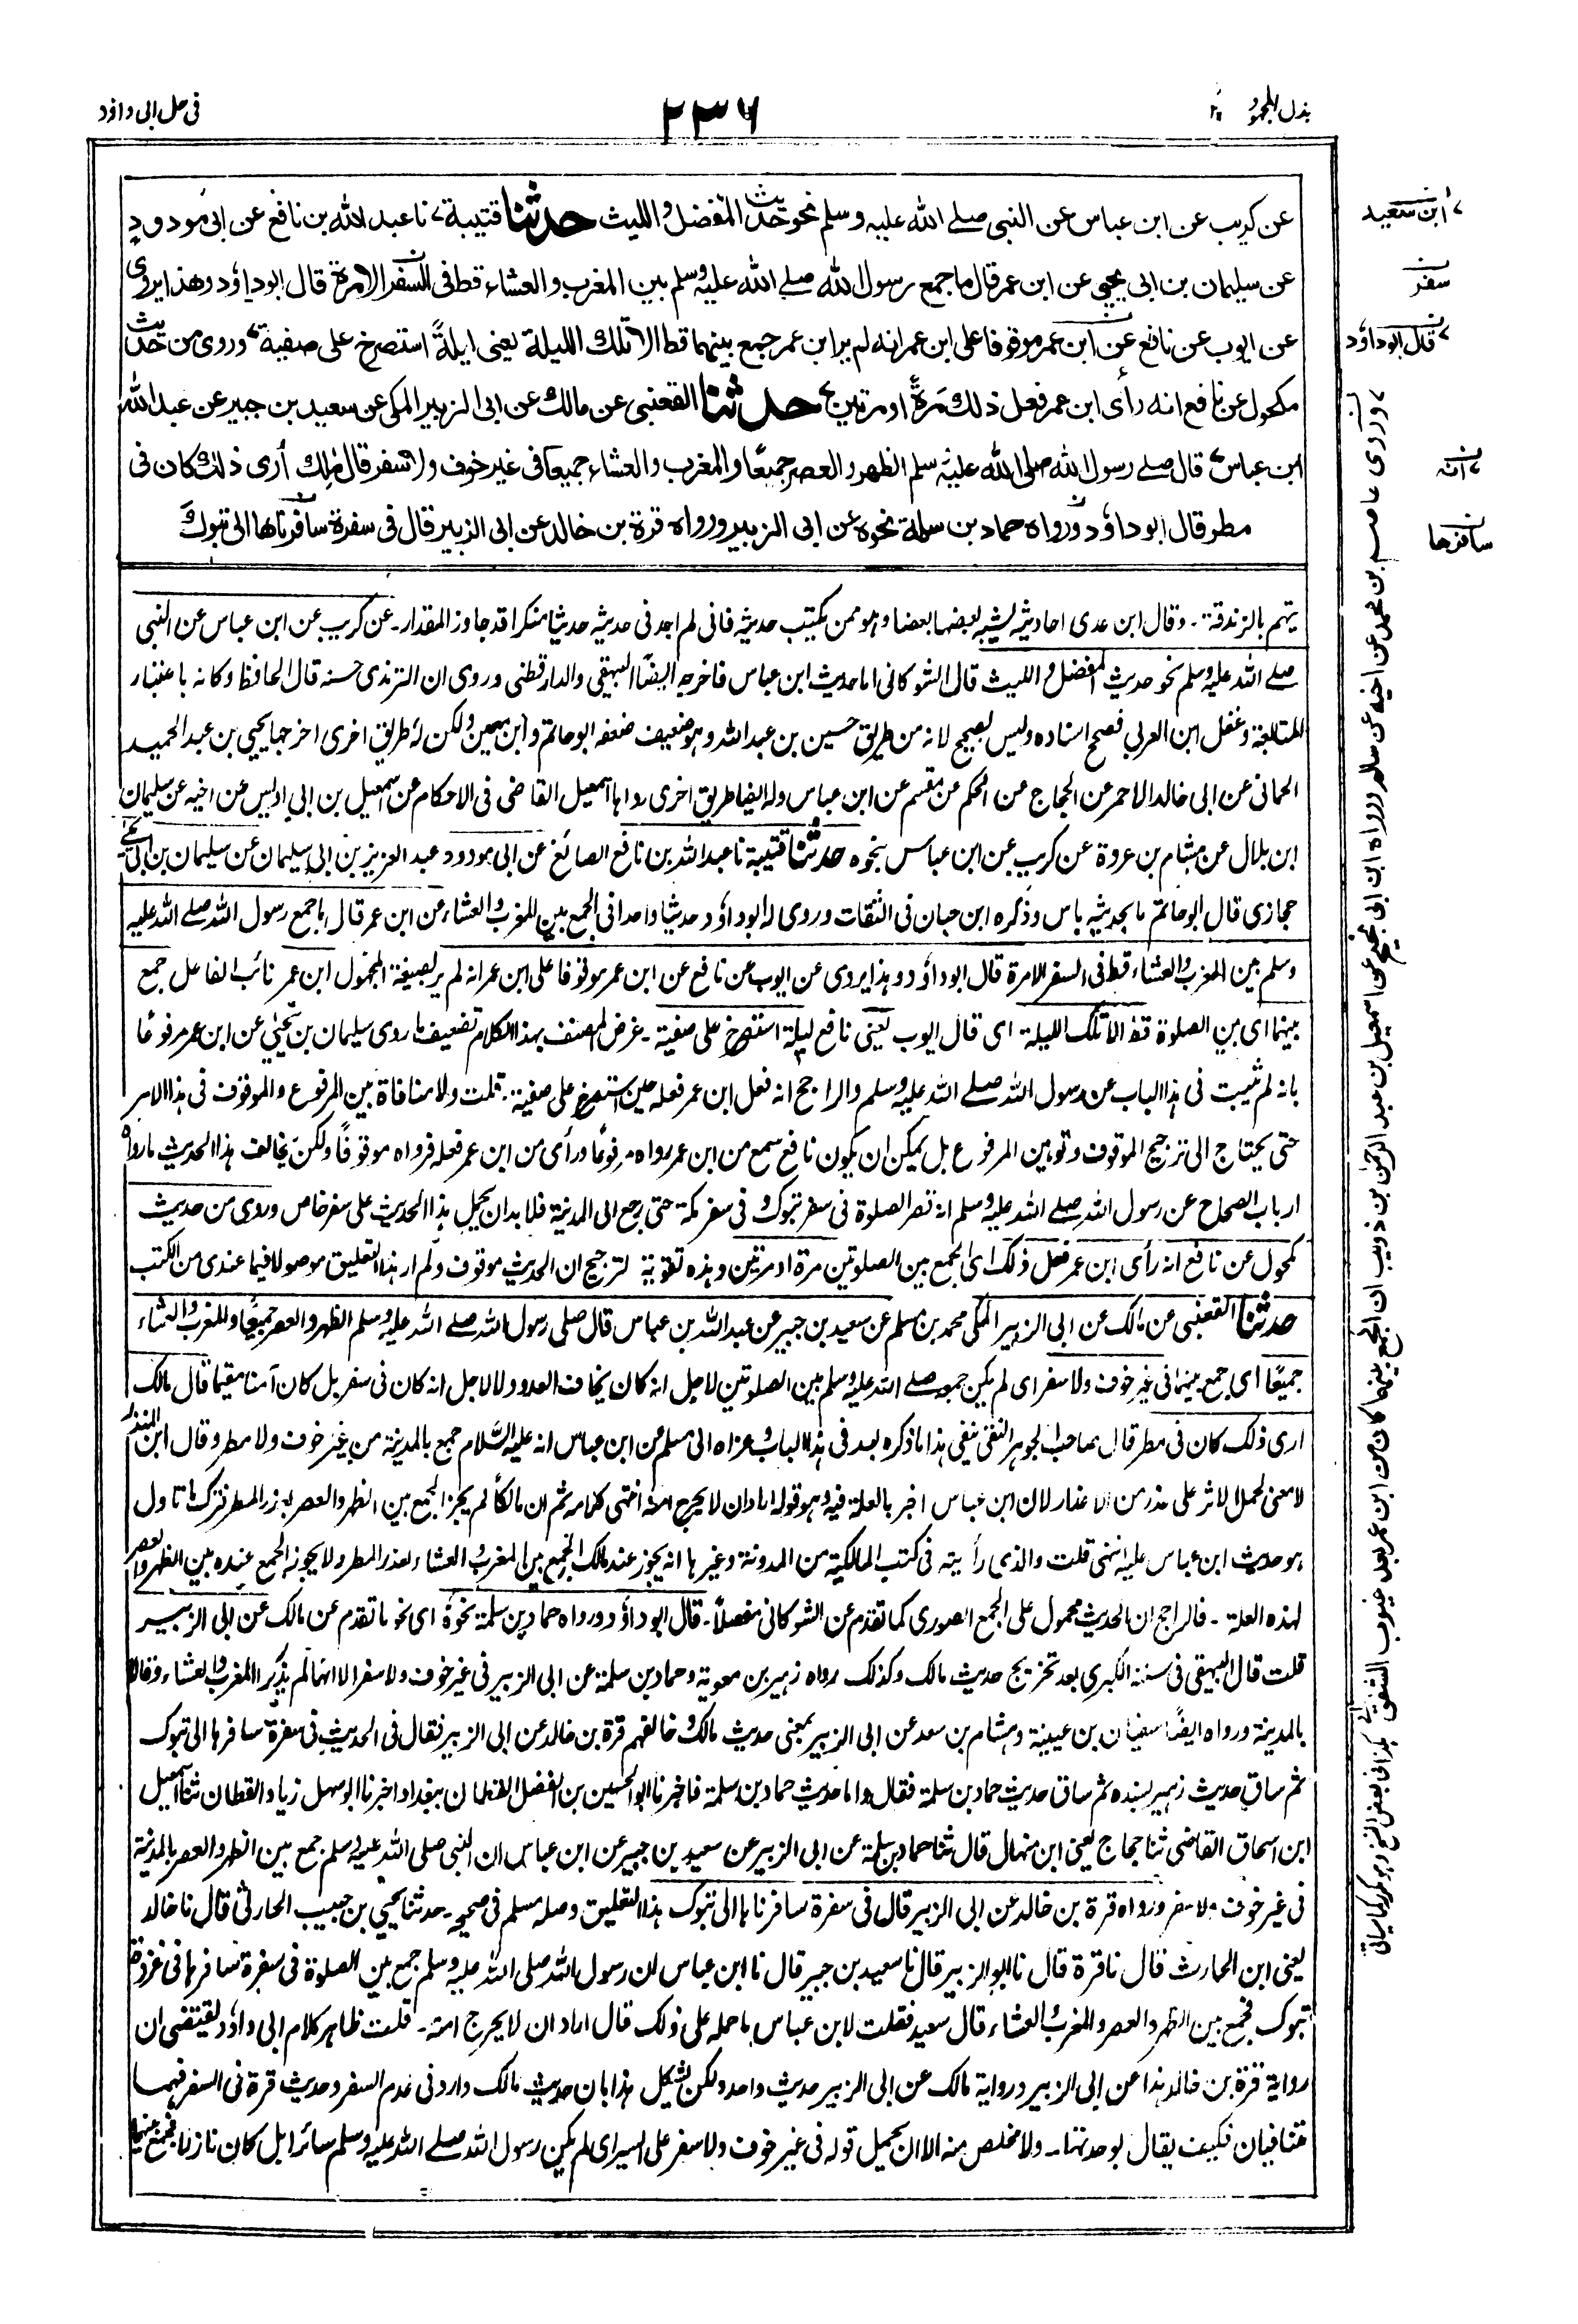 بذل المجهود
٢٣٦
فی حل ابی داؤد
عن كريب عن ابن عباس عن النبى صلے الله عليه وسلم نحو حديث المفضل والليث حدثنا قتيبة نا عبد الله بن نافع عن ابى مودود
عن سليمان بن ابى يحيى عن ابن عمر قال ما جمع رسول الله صلے الله عليه وسلم بين المغرب والعشاء قط فى السفر الا مرة قال ابو داؤد وهذا يروى
عن ايوب عن نافع عن ابن عمر موقوفا على ابن عمر انه لم ير ابن عمر جمع بينهما قط الا تلك الليلة يعنى ليلةً استصرخ على صفية وروى من حديث
مكحول عن نافع انه رأى ابن عمر فعل ذلك مرةً او مرتين حدثنا القعنبى عن مالك عن ابى الزبير المكى عن سعيد بن جبير عن عبد الله
ابن عباس قال صلے رسول الله صلى الله عليه وسلم الظهر والعصر جميعًا والمغرب والعشاء جميعا فى غير خوف ولا سفر قال مٰلك أرى ذلك كان فى
مطر قال ابو داؤد ورواه حماد بن سلمة نحوه عن ابى الزبير ورواه قرة بن خالد عن ابى الزبير قال فى سفرة سافرناها الى تبوك
يتهم بالزندقة۔ وقال ابن عدى احاديثه يشبه بعضها بعضا وهو ممن يكتب حديثه فانى لم اجد فى حديثه حديثا منكرا قد جاوز المقدار۔ عن كريب عن ابن عباس عن النبى
صلے الله عليه وسلم نحو حديث المفضل والليث قال الشوكانى اما حديث ابن عباس فاخرجه ايضًا البيهقى والدارقطنى وروى ان الترمذى حسنه قال الحافظ وكانه باعتبار
المتابعة وغفل ابن العربى فصحح اسناده وليس بصحيح لانه من طريق حسين بن عبد الله وهو ضعيف ضعفه ابو حاتم وابن معين ولكن له طريق اخرى اخرجها يحيى بن عبد الحميد
الحمانى عن ابى خالد الاحمر عن الحجاج عن الحكم عن مقسم عن ابن عباس وله ايضا طريق اخرى رواها اسمعيل القاضى فى الاحكام عن اسمعيل بن ابى اويس عن اخيه عن سليمان
ابن بلال عن هشام بن عروة عن كريب عن ابن عباس بنحوه حدثنا قتيبة نا عبد الله بن نافع الصائغ عن ابى مودود عبد العزيز بن ابى سليمان عن سليمان بن ابى يحيے
حجازى قال ابو حاتم ما بحديثه باس وذكره ابن حبان فى الثقات وروى له ابو داؤد حديثا واحدا فى الجمع بين المغرب والعشاء عن ابن عمر قال ما جمع رسول الله صلے الله عليه
وسلم بين المغرب والعشاء قط فى السفر الا مرة قال ابو داؤد وهذا يروى عن ايوب عن نافع عن ابن عمر موقوفا على ابن عمر انه لم ير بصيغة المجهول ابن عمر نائب الفاعل جمع
بينهما اى بين الصلوة قط الا تلك الليلة اى قال ايوب يعنى نافع ليلة استصرخ على صفية۔ غرض المصنف بهذا الكلام تضعيف ما روى سليمان بن يحيى عن ابن عمر مرفوعًا
بانه لم يثبت فى هذا الباب عن رسول الله صلے الله عليه وسلم والراجح انه فعل ابن عمر فعله حين استصرخ على صفية۔ قلت ولا منافاة بين المرفوع والموقوف فى هذا الامر
حتى يحتاج الى ترجيح الموقوف وتوهين المرفوع بل يمكن ان يكون نافع سمع من ابن عمر رواه مرفوعًا ورأى من ابن عمر فعله فرواه موقوفًا ولكن يخالف هذا الحديث ما رواه
ارباب الصحاح عن رسول الله صلے الله عليه وسلم انه قصر الصلوة فى سفر تبوك وفى سفر مكة حتى رجع الى المدينة فلا بد ان يحمل هذا الحديث على سفر خاص وروى من حديث
مكحول عن نافع انه رأى ابن عمر فعل ذلك اى الجمع بين الصلوتين مرة او مرتين وهذه تقوية لترجيح ان الحديث موقوف ولم ار هذا التعليق موصولا فيما عندى من الكتب
حدثنا القعنبى عن مالك عن ابى الزبير المكى محمد بن مسلم عن سعيد بن جبير عن عبد الله بن عباس قال صلى رسول الله صلے الله عليه وسلم الظهر والعصر جميعًا والمغرب والعشاء
جميعًا اى جمع بينهما فى غير خوف ولا سفر اى لم يكن جمعه صلے الله عليه وسلم بين الصلوتين لاجل انه كان يخاف العدو ولا لاجل انه كان فى سفر بل كان آمنا مقيما قال مالك
ارى ذلك كان فى مطر قال صاحب الجوهر النقى ينفى هذا ما ذكره بعد فى هذا الباب وعزاه الى مسلم عن ابن عباس انه عليه السلام جمع بالمدينة من غير خوف ولا مطر وقال ابن المنذر
لا معنى لحمل الاثر على عذر من الاعذار لان ابن عباس اخبر بالعلة فيه وهو قوله اراد ان لا يحرج امته انتهى كلامه ثم ان مالكًا لم يجز الجمع بين الظهر والعصر بعذر المطر فترك ما تاول
هو حديث ابن عباس عليه انتهى قلت والذى رأيته فى كتب المالكية من المدونة وغيرها انه يجوز عند مالك الجمع بين المغرب والعشاء بعذر المطر ولا يجوز الجمع عنده بين الظهر والعصر
لهذه العلة۔ فالراجح ان الحديث محمول على الجمع الصورى كما تقدم عن الشوكانى مفصلًا۔ قال ابو داؤد ورواه حماد بن سلمة نحوه اى نحو ما تقدم عن مالك عن ابى الزبير
قلت قال البيهقى فى سننه الكبرى بعد تخريج حديث مالك وكذلك رواه زهير بن معوية وحماد بن سلمة عن ابى الزبير فى غير خوف ولا سفر الا انهما لم يذكرا المغرب والعشاء وقالا
بالمدينة ورواه ايضًا سفيان بن عيينة وهشام بن سعد عن ابى الزبير بمعنى حديث مالك وخالفهم قرة بن خالد عن ابى الزبير فقال فى الحديث فى سفرة سافرها الى تبوك
ثم ساق حديث زهير بسنده ثم ساق حديث حماد بن سلمة فقال واما حديث حماد بن سلمة فاخبرنا ابو الحسين بن الفضل القطان ببغداد اخبرنا ابو سهل زياد القطان ثنا اسمعيل
ابن اسحاق القاضى ثنا حجاج يعنى ابن منهال قال ثنا حماد بن سلمة عن ابى الزبير عن سعيد بن جبير عن ابن عباس ان النبى صلى الله عليه وسلم جمع بين الظهر والعصر بالمدينة
فى غير خوف ولا سفر ورواه قرة بن خالد عن ابى الزبير قال فى سفرة سافرناها الى تبوك هذا التعليق وصله مسلم فى صحيحه۔ حدثنا يحيى بن حبيب الحارثى قال نا خالد
يعنى ابن الحارث قال نا قرة قال نا ابو الزبير قال نا سعيد بن جبير قال نا ابن عباس ان رسول الله صلى الله عليه وسلم جمع بين الصلوة فى سفرة سافرها فى غزوة
تبوك فجمع بين الظهر والعصر والمغرب والعشاء قال سعيد فقلت لابن عباس ما حمله على ذلك قال اراد ان لا يحرج امته۔ قلت ظاهر كلام ابى داؤد يقتضى ان
رواية قرة بن خالد هذا عن ابى الزبير ورواية مالك عن ابى الزبير حديث واحد ولكن يشكل هذا بان حديث مالك وارد فى عدم السفر وحديث قرة فى السفر فهما
متنافيان فكيف يقال بوحدتهما۔ ولا مخلص منه الا ان يحمل قوله فى غير خوف ولا سفر على السير اى لم يكن رسول الله صلے الله عليه وسلم سائرا بل كان نازلا فجمع بينهما
ابن سعيد
سفر
قال ابو داؤد
انه
سافرها
وروى عاصم بن محمد عن اخيه عن سالم ورواه ابن ابى نجيح عن اسمعيل بن عبد الرحمٰن بن ذويب ان الجمع بينهما كان من ابن عمر بعد غيوب الشفق